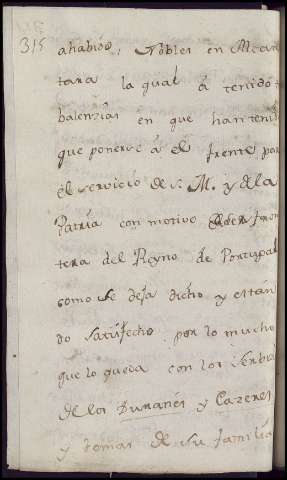 315
a habido, Nobles en Alcan
tara la qual á tenido
balenzias en que han tenido
que ponerse á el frente por
el servicio de S. M. y dela
Patria con motivo de ser fron
tera del Reyno de Portugal
como se deja dicho y están
do satisfecho por lo mucho
que lo queda con los servi
de los Duranes y Cazeres
y demas de su familia